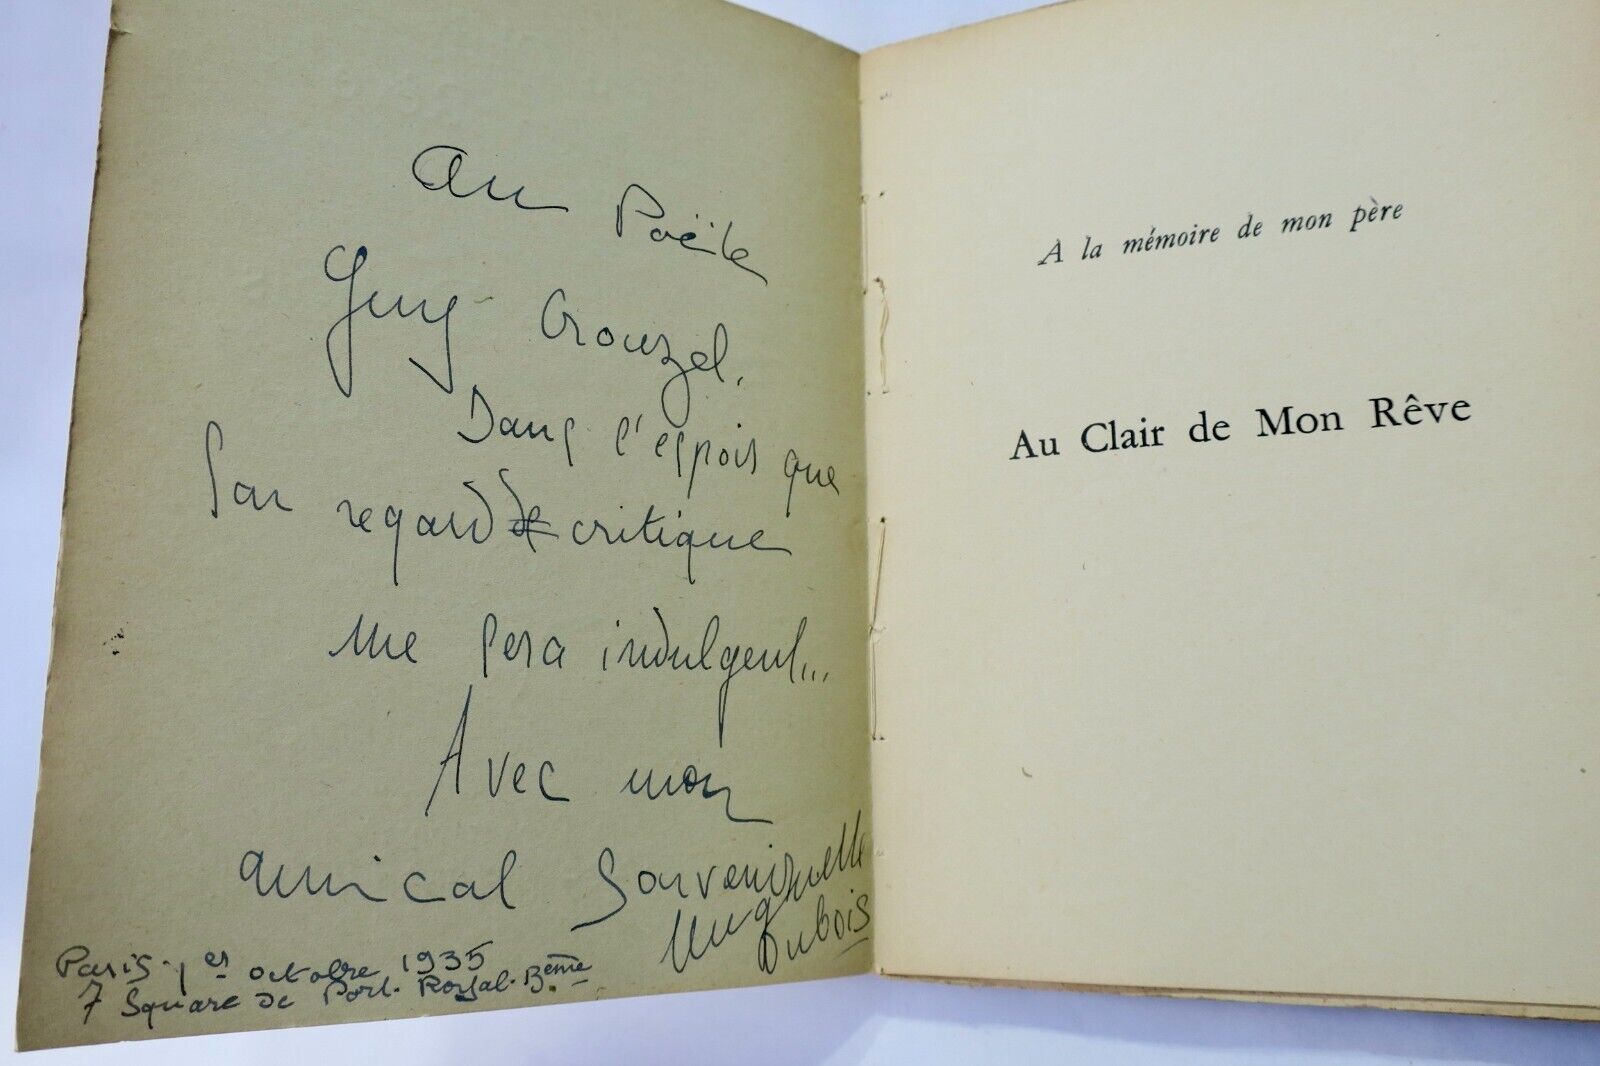 Au Poëte
Guy Crouzel,
Dans l'espoir que
son regard de critique
me sera indulgent...
Avec mon
amical souvenir
Huguette
Dubois
Paris. 1er octobre 1935
7 Square de Port. Royal. 13ème
A la mémoire de mon père
Au Clair de Mon Rêve